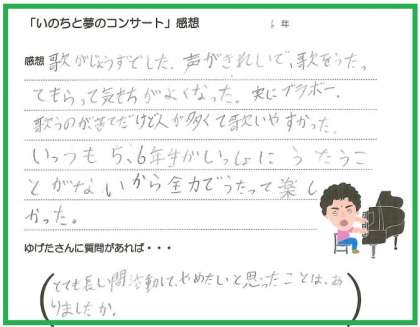 「いのちと夢のコンサート」感想 6年
感想 歌がじょうずでした。声がきれいで、歌をうたっ
てもらって気もちがよくなった。実にブラボー。
歌うのが苦てだけど人が多くて歌いやすかった。
いっつも5、6年生がいっしょに うたうこ
とがないから全力でうたって楽し
かった。
ゆげたさんに質問があれば・・・
とても長い間活動して、やめたいと思ったことは、あ
りましたか。